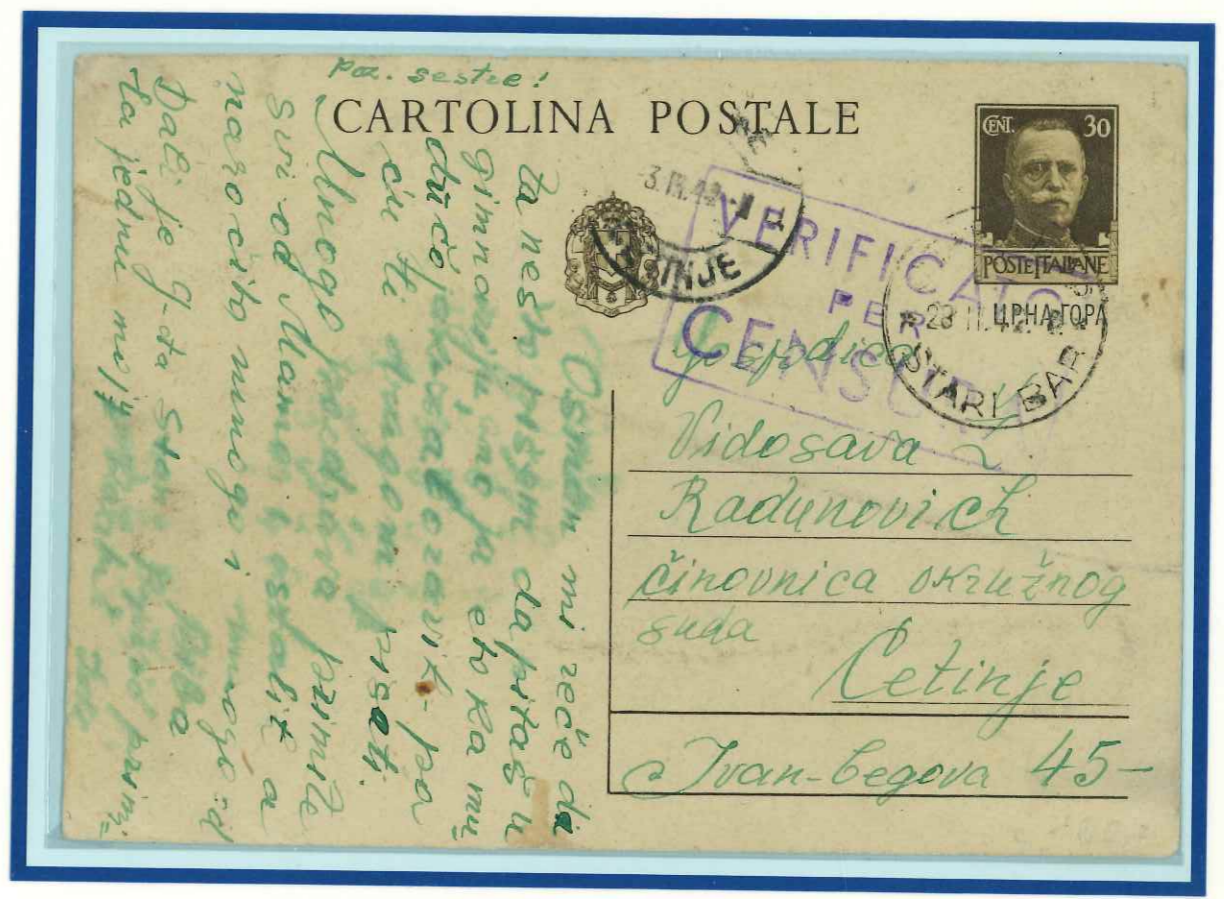 Poz. sestre!
CARTOLINA POSTALE
CENT. 30
POSTE ITALIANE
ЦРНА ГОРА
3.III.42
CETINJE
VERIFICATO
PER
CENSURA
23 II. 42
STARI BAR
Gospođica
Vidosava L
Radunovich
činovnica okružnog
suda
Cetinje
Ivan-begova 45-
Osman mi reče da
ta nešto pišem da pitaš u
gimnaziji, no ja eto ka mu
zaboravih- pa
ću ti drugom pisati.
Mnogo pozdrava primite
svi od Mame i ostalih a
naročito mnogo i mnogo od
Dali je g-đa Stane
za jednu mo primi=